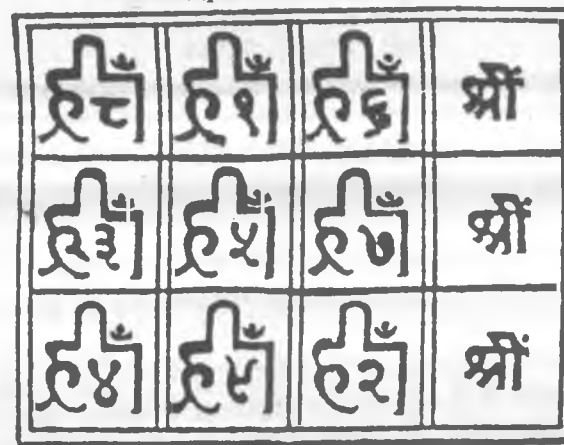 ह्रँ ८ ह्रँ १ ह्रँ ६ श्रीं
ह्रँ ३ ह्रँ ५ ह्रँ ७ श्रीं
ह्रँ ४ ह्रँ ९ ह्रँ २ श्रीं